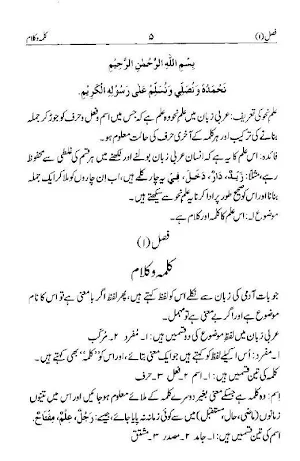 فصل (۱) ۵ کلمہ و کلام
بِسْمِ اللهِ الرَّحْمٰنِ الرَّحِيْمِ
نَحْمَدُهٗ وَنُصَلِّيْ وَنُسَلِّمُ عَلٰى رَسُوْلِهِ الْكَرِيْمِ.
علم نحو کی تعریف: عربی زبان میں علم نحو وہ علم ہے کہ جس میں اسم وفعل وحرف کو جوڑ کر جملہ
بنانے کی ترکیب اور ہر کلمہ کے آخری حرف کی حالت معلوم ہو۔
فائدہ: اس علم کا یہ ہے کہ انسان عربی زبان بولنے اور لکھنے میں ہر قسم کی غلطی سے محفوظ
رہے، مثلًا: زَيْدٌ، دَارٌ، دَخَلَ، فِيْ یہ چار کلمے ہیں، اب ان چاروں کو ملا کر ایک جملہ
بنانا اور اس کو صحیح طور پر ادا کرنا یہ علم نحو سے سیکھتے ہیں۔
موضوع: اس علم کا کلمہ اور کلام ہے۔
فصل (۱)
کلمہ و کلام
جو بات آدمی کی زبان سے نکلے اس کو لفظ کہتے ہیں، پھر لفظ اگر بامعنی ہے تو اس کا نام
موضوع ہے اور اگر بے معنی ہے تو مہمل۔
عربی زبان میں لفظ موضوع کی دو قسمیں ہیں: ۱۔ مفرد ۲۔ مرکّب
۱۔ مفرد: اس اکیلے لفظ کو کہتے ہیں جو ایک معنی بتائے، اور اس کو ”کلمہ“ بھی کہتے ہیں۔
کلمہ کی تین قسمیں ہیں: ۱۔ اسم ۲۔ فعل ۳۔ حرف
اسم: وہ کلمہ ہے جسکے معنی بغیر دوسرے کلمہ کے ملائے معلوم ہو جائیں اور اس میں تینوں
زمانوں (ماضی، حال، مستقبل) میں سے کوئی زمانہ نہ پایا جائے، جیسے: رَجُلٌ، عِلْمٌ، مِفْتَاحٌ.
اسم کی تین قسمیں ہیں: ۱۔ جامد ۲۔ مصدر ۳۔ مشتق